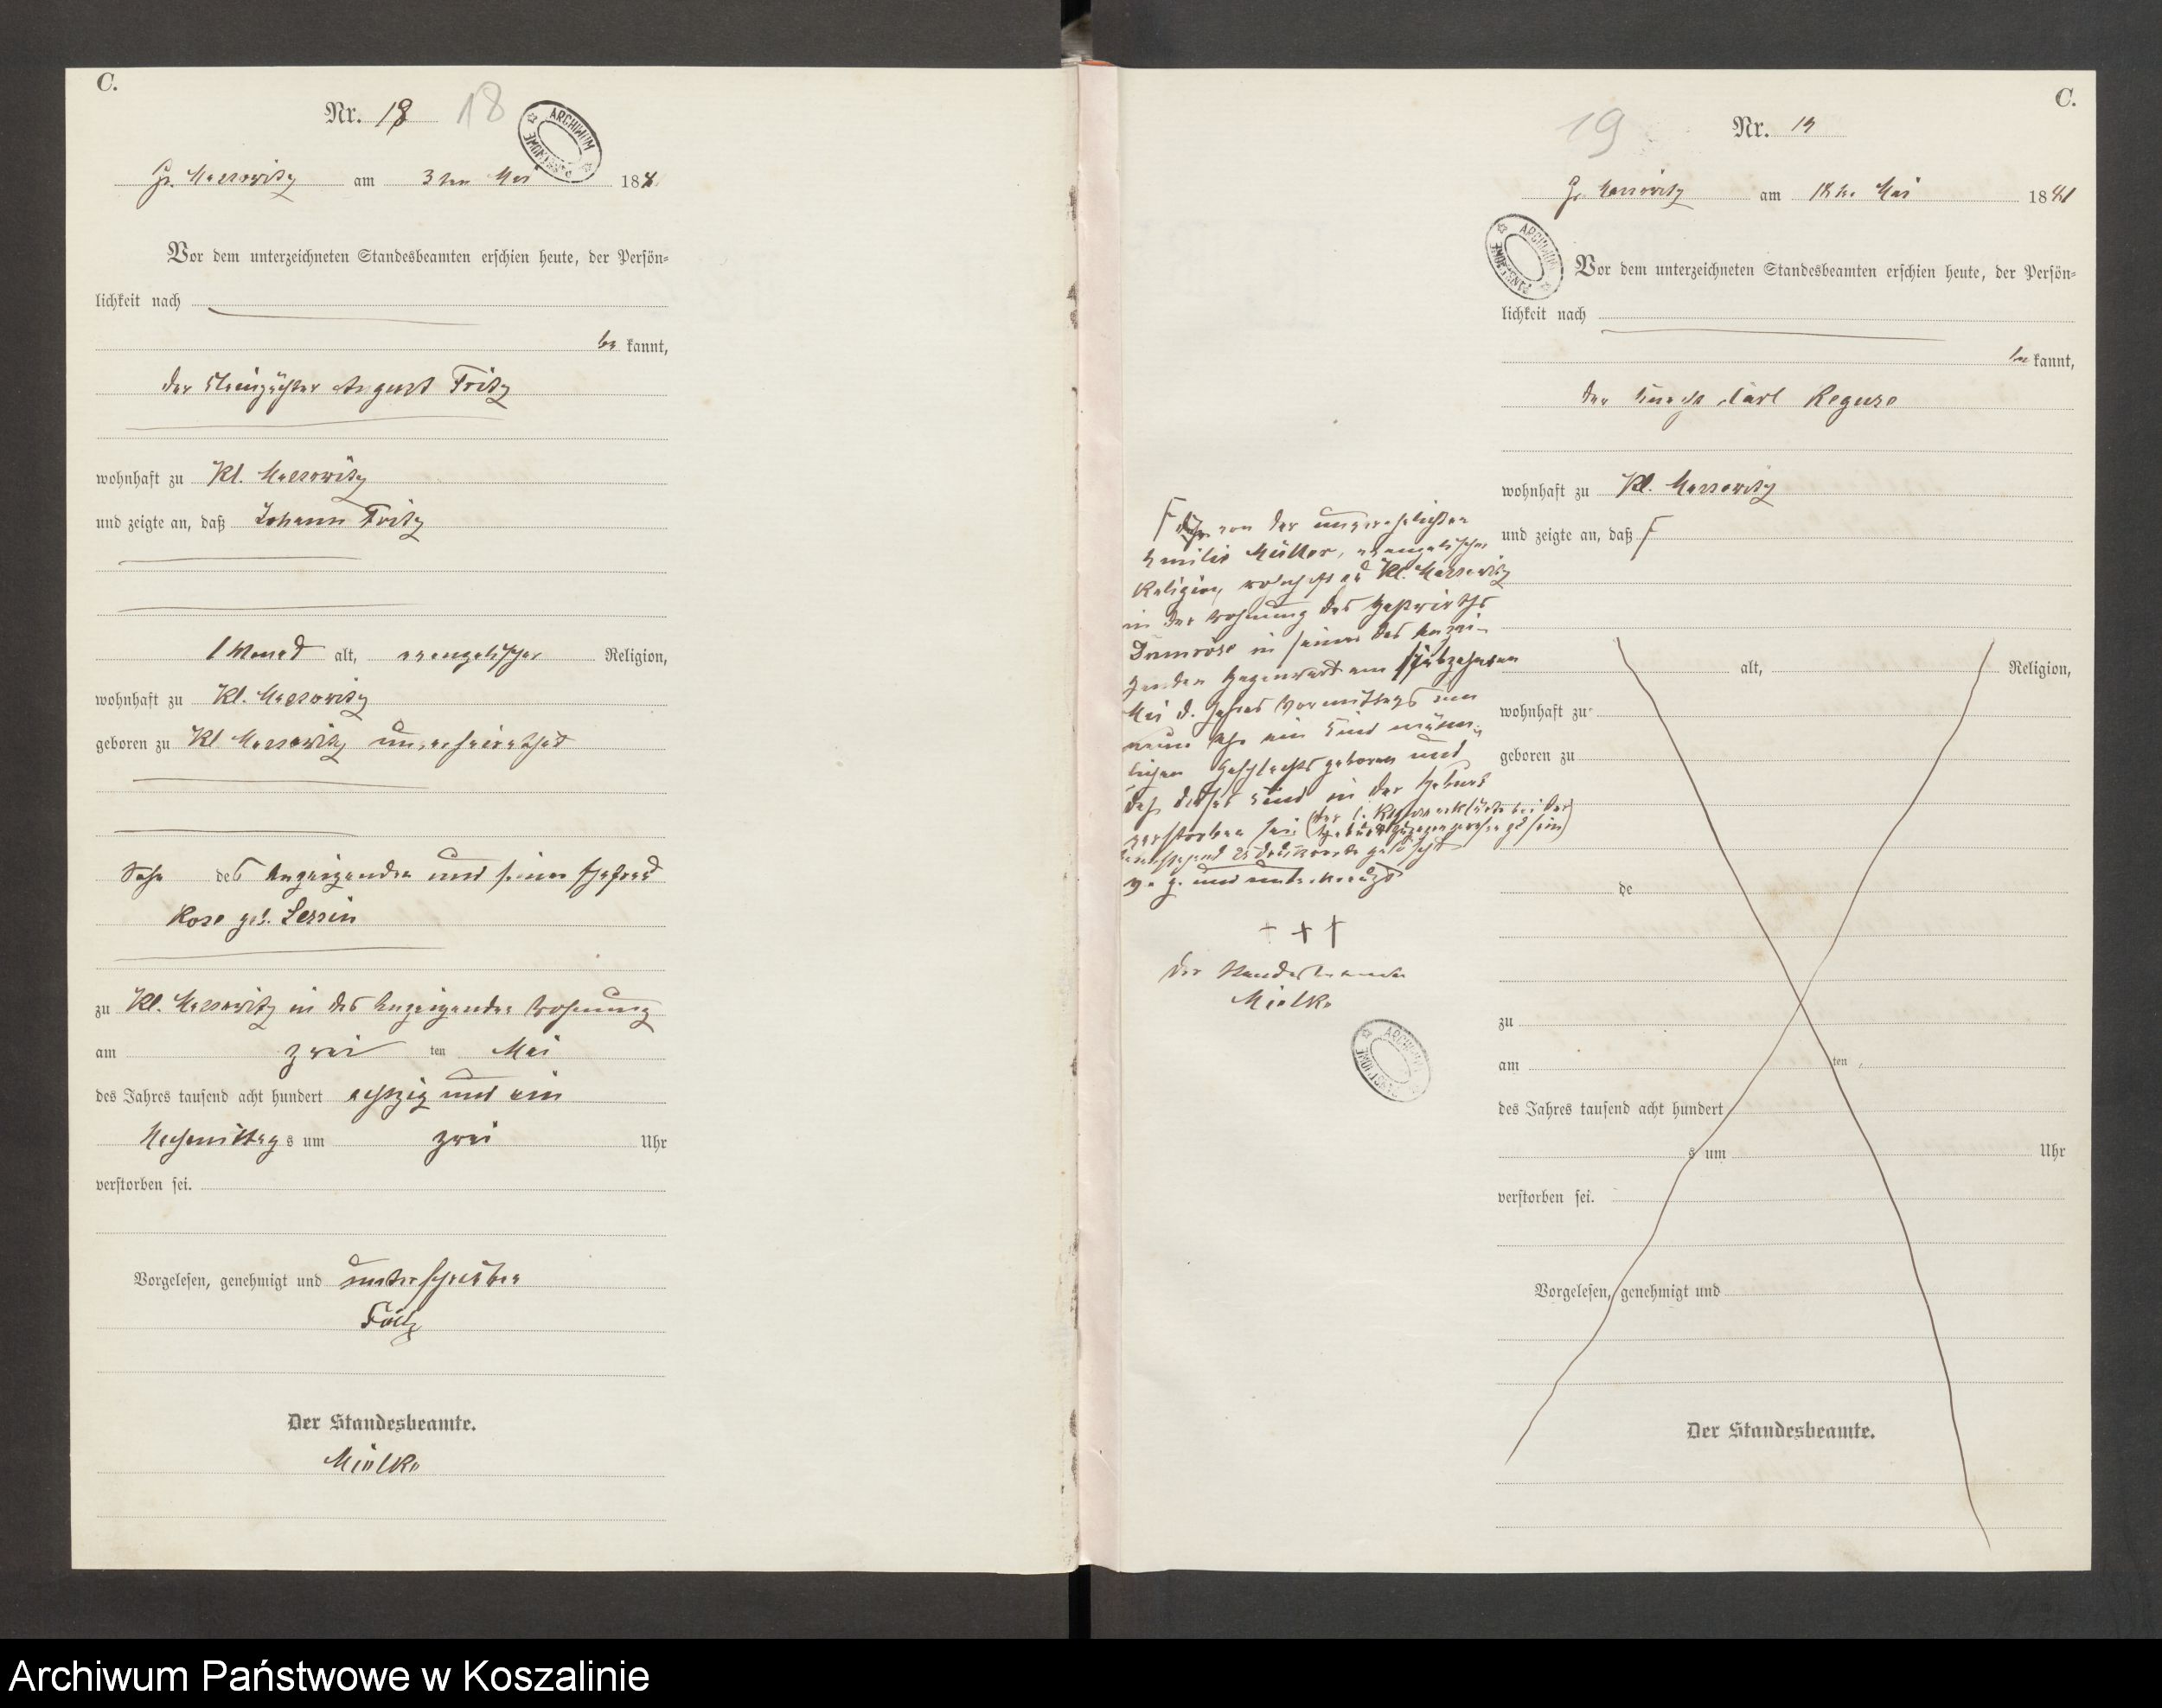 C.
Nr. 18 18
ARCHIWUM PAŃSTWOWE
Gr. Massowitz am 3ten Mai 188
Vor dem unterzeichneten Standesbeamten erschien heute, der Persön=
lichkeit nach
be kannt,
der August Fritz
wohnhaft zu Kl. Massowitz
und zeigte an, daß Johann Fritz
1 Monat alt, evangelischer Religion,
wohnhaft zu Kl. Massowitz
geboren zu Kl Massowitz unverheirathet
Sohn des Anzeigenden und seiner Ehefrau
Rose geb. Lessin
zu Kl. Massowitz in des Anzeigenden Wohnung
am zwei ten Mai
des Jahres tausend acht hundert achtzig und ein
Nachmittags um zwei Uhr
verstorben sei.
Vorgelesen, genehmigt und unterschrieben
Fritz
Der Standesbeamte.
Mielke
C.
19 Nr. 19
Gr. Massowitz am 18ten Mai 1881
ARCHIWUM PAŃSTWOWE
Vor dem unterzeichneten Standesbeamten erschien heute, der Persön=
lichkeit nach
be kannt,
der Knecht Carl Reguse
wohnhaft zu Kl. Massowitz
und zeigte an, daß F
alt, Religion,
wohnhaft zu
geboren zu
de
zu
am ten
des Jahres tausend acht hundert
s um Uhr
verstorben sei.
Vorgelesen, genehmigt und
Der Standesbeamte.
F von der unverehelichten
Emilie Müller, evangelischer
Religion, wohnhaft zu Kl. Massowitz
in der Wohnung des Gastwirths
Dumröse in seiner des Anzei-
genden Gegenwart am siebzehnten
Mai d. Jahres Vormittags um
neun Uhr ein Kind männ-
lichen Geschlechts geboren und
daß dieses Kind in der Geburt
verstorben sei (der erklärte bei der
Geburt zugegen gewesen zu sein)
Vorstehend 25 Druckworte gelöscht
v. g. und unterkreuzt
+ + +
Der Standesbeamte
Mielke
ARCHIWUM PAŃSTWOWE
Archiwum Państwowe w Koszalinie